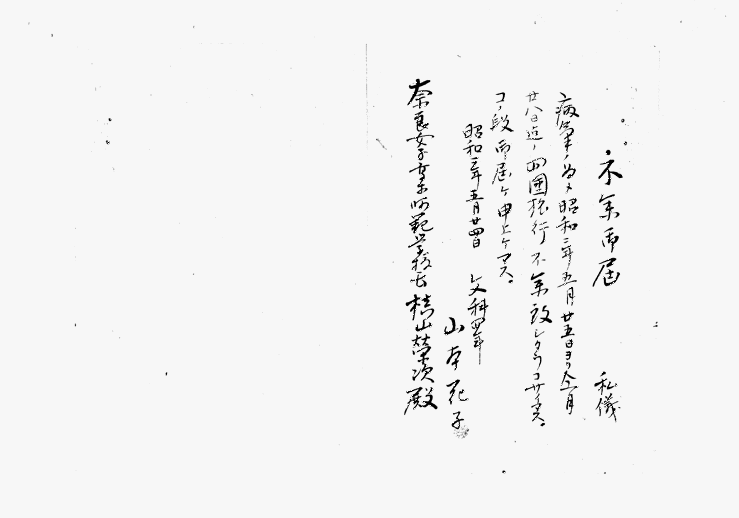 不参御届
私儀
病気ノ為メ昭和三年五月廿五日ヨリ仝月
廿八日迄ノ四國旅行不参致シタウゴザイマス。
コノ段御届ケ申上ケマス。
昭和三年五月廿四日
文科四年
山本 子
奈良女子高等師範学校長 槇山榮次殿